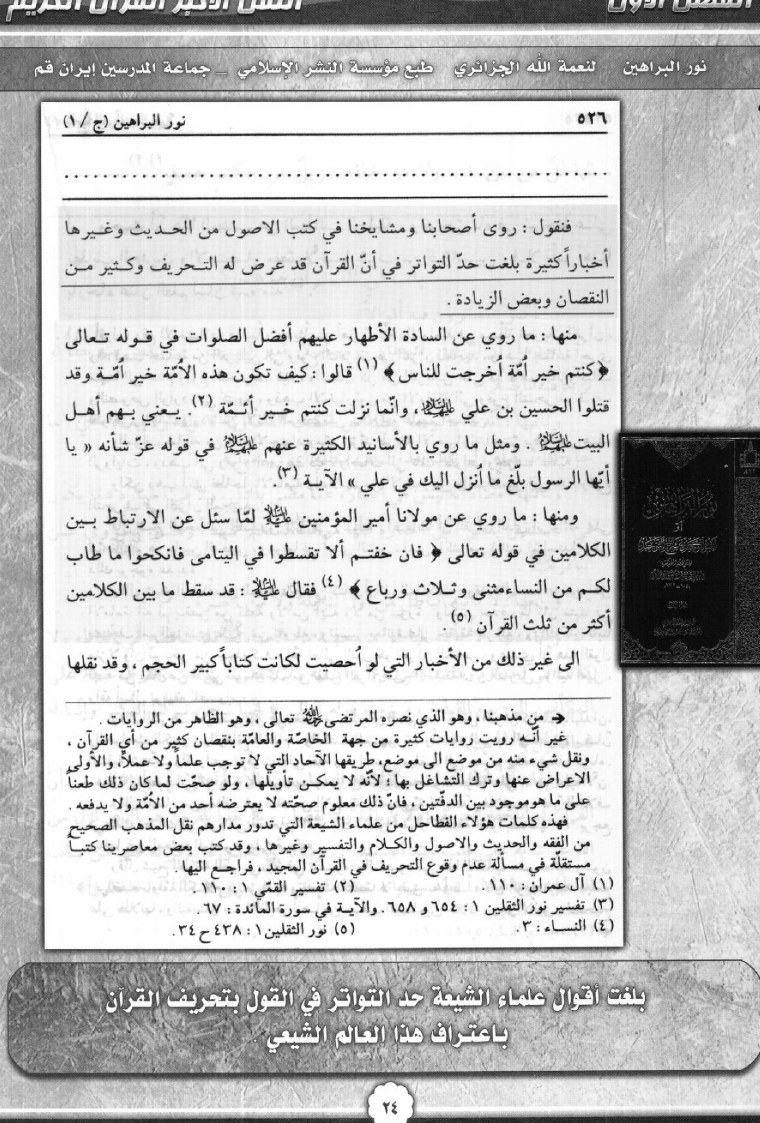 الفصل الأول
الثقل الأكبر القرآن الكريم
نور البراهين لنعمة الله الجزائري طبع مؤسسة النشر الإسلامي _ جماعة المدرسين إيران قم
٥٢٦ نور البراهين (ج / ١)
فنقول : روى أصحابنا ومشايخنا في كتب الاصول من الحديث وغيرها
أخباراً كثيرة بلغت حدّ التواتر في أنّ القرآن قد عرض له التحريف وكثير من
النقصان وبعض الزيادة .
منها : ما روي عن السادة الأطهار عليهم أفضل الصلوات في قوله تعالى
﴿ كنتم خير اُمّة اُخرجت للناس ﴾ (١) قالوا : كيف تكون هذه الاُمّة خير اُمّة وقد
قتلوا الحسين بن علي عليهما السلام ، وانّما نزلت كنتم خير أئمّة (٢) . يعني بهم أهل
البيت عليهم السلام . ومثل ما روي بالأسانيد الكثيرة عنهم عليهم السلام في قوله عزّ شأنه « يا
أيّها الرسول بلّغ ما اُنزل اليك في علي » الآية (٣).
ومنها : ما روي عن مولانا أمير المؤمنين عليه السلام لمّا سئل عن الارتباط بين
الكلامين في قوله تعالى ﴿ فان خفتم ألا تقسطوا في اليتامى فانكحوا ما طاب
لكم من النساء مثنى وثلاث ورباع ﴾ (٤) فقال عليه السلام : قد سقط ما بين الكلامين
أكثر من ثلث القرآن (٥) .
الى غير ذلك من الأخبار التي لو اُحصيت لكانت كتاباً كبير الحجم ، وقد نقلها
→ من مذهبنا ، وهو الذي نصره المرتضى رحمه الله تعالى ، وهو الظاهر من الروايات .
غير أنّه رويت روايات كثيرة من جهة الخاصّة والعامّة بنقصان كثير من أي القرآن ،
ونقل شيء منه من موضع الى موضع، طريقها الآحاد التي لا توجب علماً ولا عملاً، والأولى
الاعراض عنها وترك التشاغل بها : لأنّه لا يمكن تأويلها ، ولو صحّت لما كان ذلك طعناً
على ما هو موجود بين الدفّتين ، فانّ ذلك معلوم صحّته لا يعترضه أحد من الاُمّة ولا يدفعه .
فهذه كلمات هؤلاء الفطاحل من علماء الشيعة التي تدور مدارهم نقل المذهب الصحيح
من الفقه والحديث والاصول والكلام والتفسير وغيرها ، وقد كتب بعض معاصرينا كتبا
مستقلّة في مسألة عدم وقوع التحريف في القرآن المجيد ، فراجع اليها .
(١) آل عمران : ١١٠ . (٢) تفسير القمّي ١ : ١١٠ .
(٣) تفسير نور الثقلين ١ : ٦٥٤ و ٦٥٨ . والآية في سورة المائدة : ٦٧ .
(٤) النساء : ٣ . (٥) نور الثقلين ١ : ٤٣٨ ح ٣٤.
نور البراهين
بلغت أقوال علماء الشيعة حد التواتر في القول بتحريف القرآن
باعتراف هذا العالم الشيعي .
٢٤